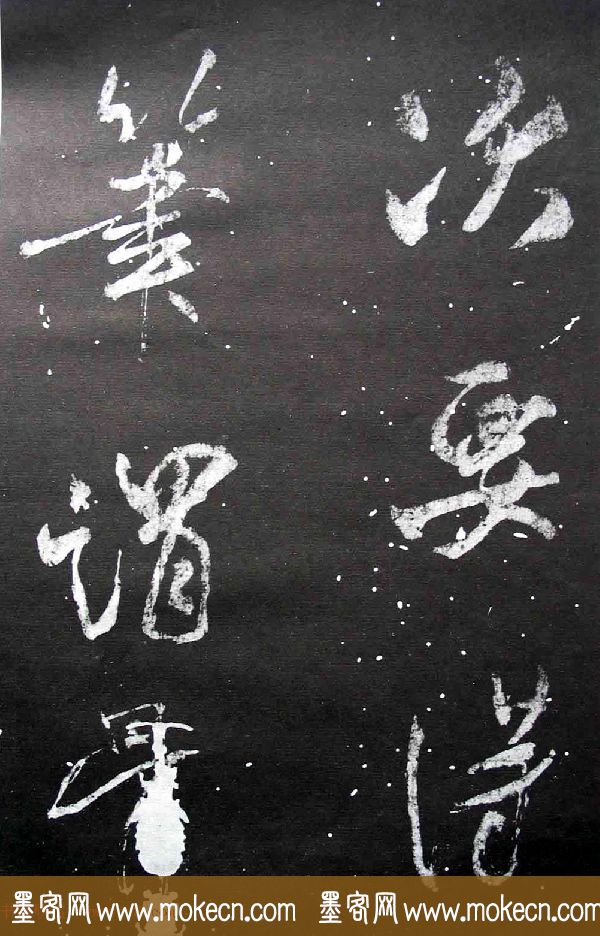 次要得
筆謂骨
墨客网 www.mokecn.com 墨客网 www.mokecn.com